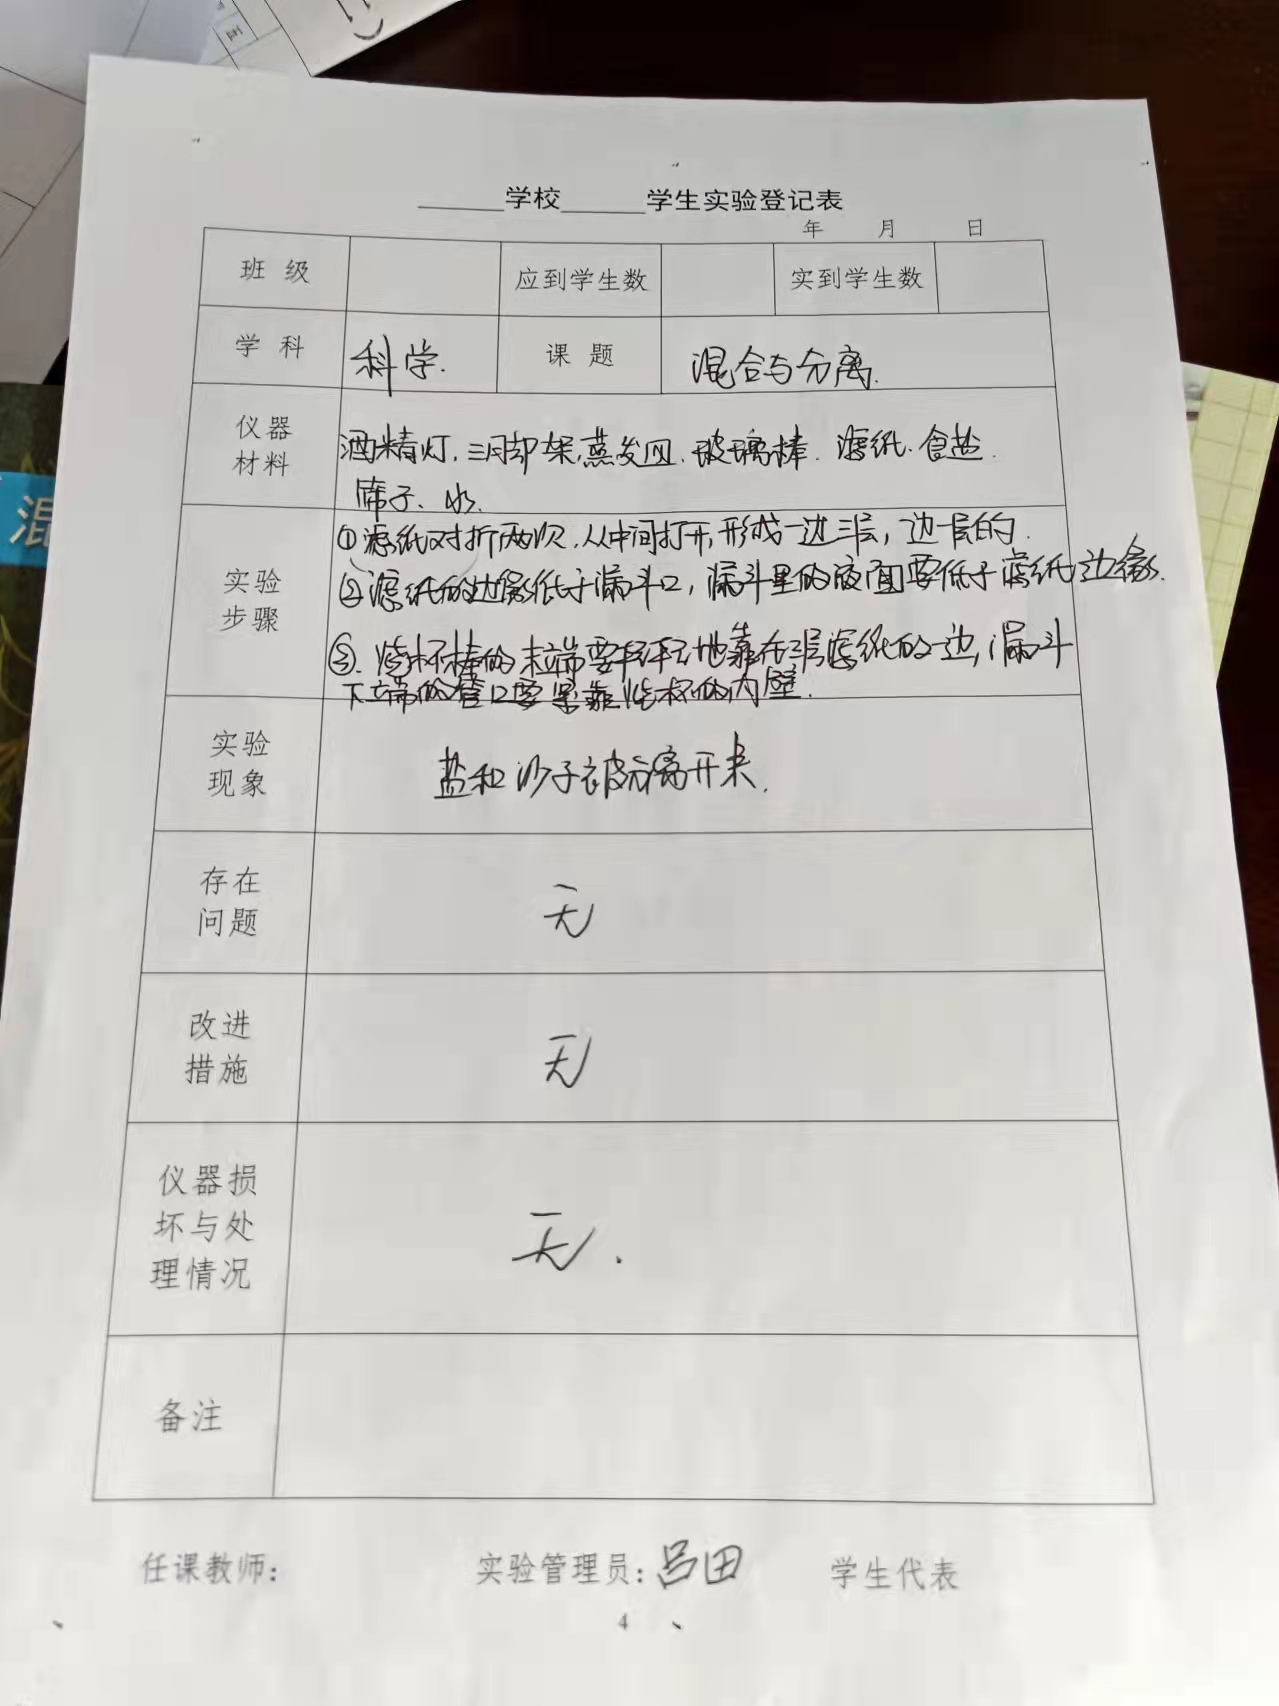 五
混
______学校______学生实验登记表
年 月 日
班 级 应到学生数 实到学生数
学 科 科学. 课 题 混合与分离.
仪器
材料
酒精灯.三脚架,蒸发皿.玻璃棒.滤纸.食盐.
筛子.水.
实验
步骤
①滤纸对折两次,从中间打开,形成一边三层,边一层的.
②滤纸的边缘低于漏斗口,漏斗里的液面要低于滤纸边缘.
③.烧杯棒的末端要轻轻地靠在三层滤纸的一边,漏斗
下端的管口要紧靠烧杯的内壁.
实验
现象
盐和沙子被分离开来.
存在
问题
无
改进
措施
无
仪器损
坏与处
理情况
无.
备注
任课教师: 实验管理员:吕田 学生代表
4